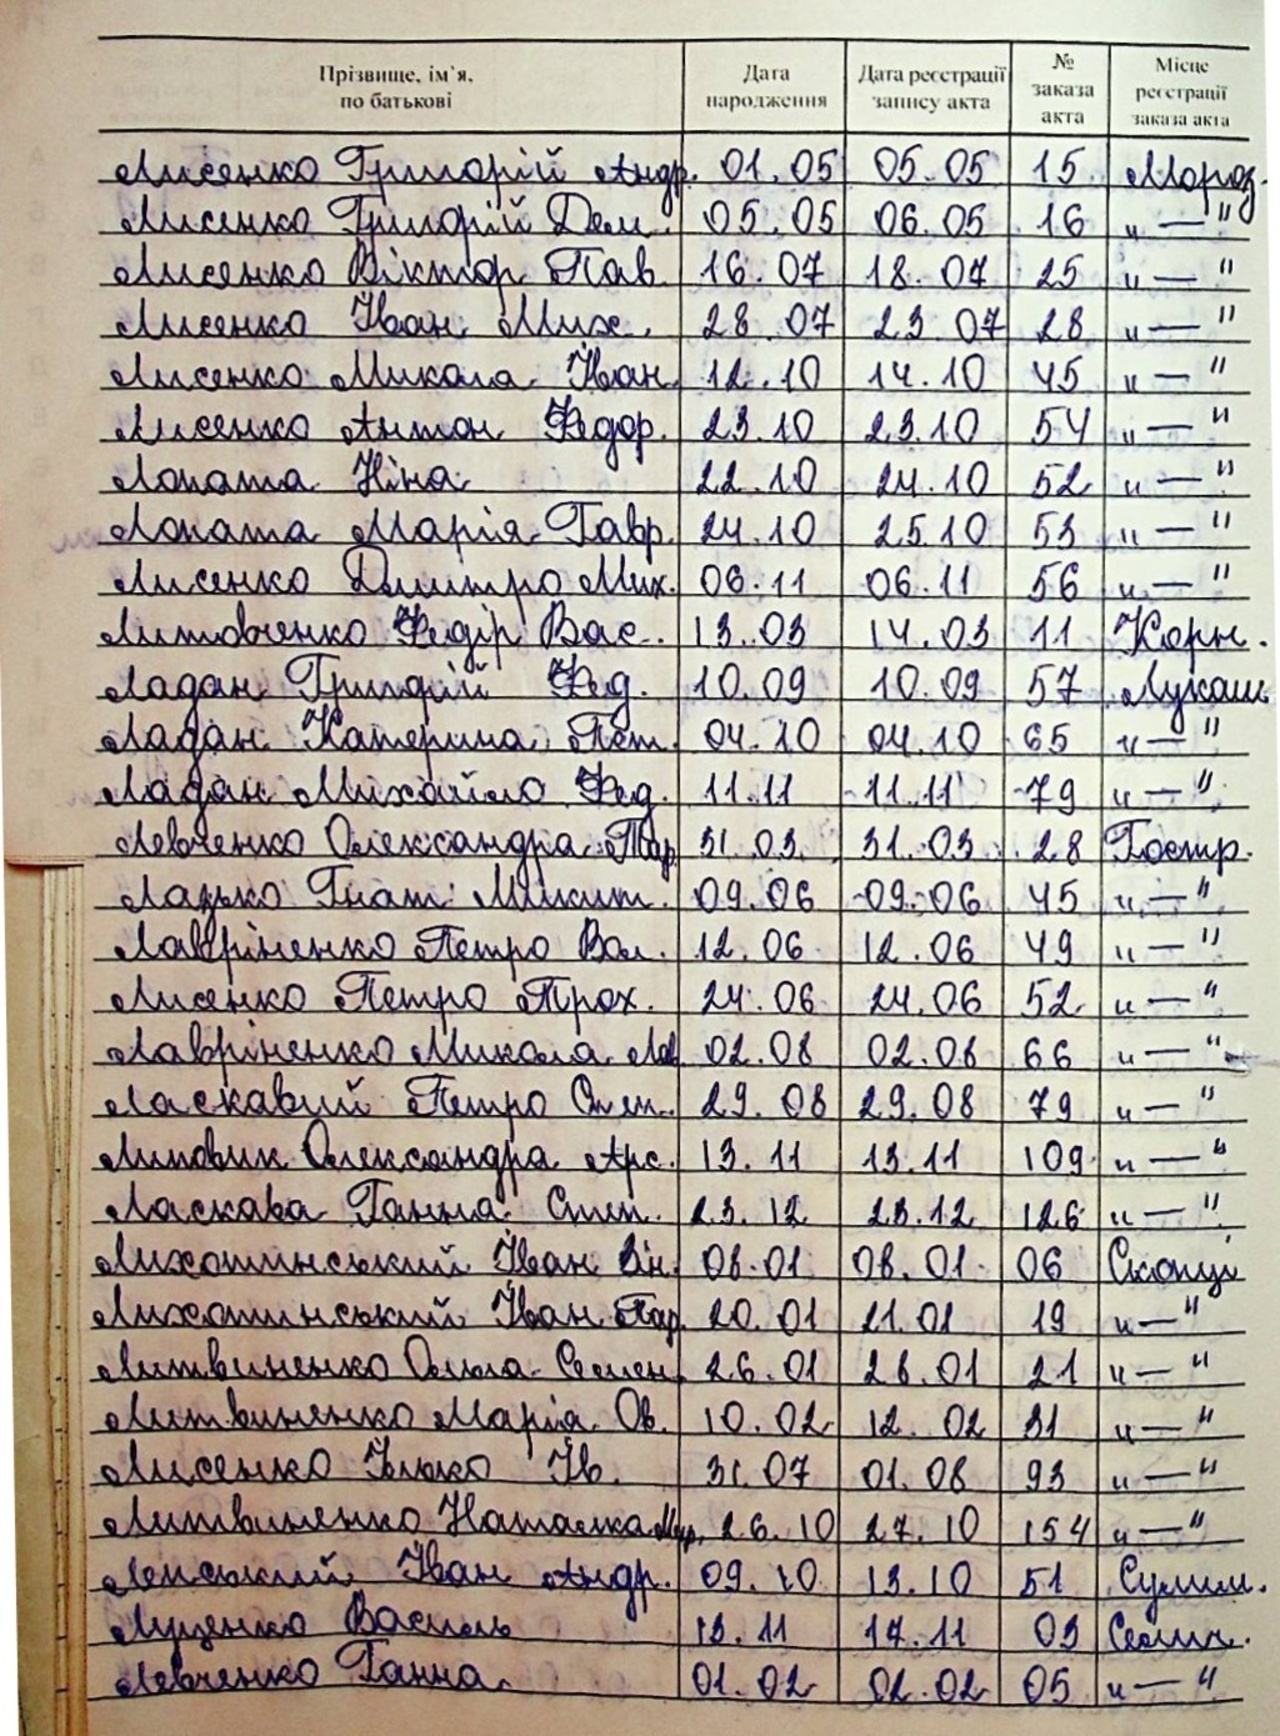 Прізвище, ім'я, по батькові | Дата народження | Дата реєстрації запису акта | № заказа акта | Місце реєстрації заказа акта
Лисенко Григорій Андр. 01.05 05.05 15 Мороз.
Лисенко Григорій Дем. 05.05 06.05 16 "—"
Лисенко Віктор Пав. 16.07 18.07 25 "—"
Лисенко Іван Мих. 28.07 23.07 28 "—"
Лисенко Микола Іван. 12.10 14.10 45 "—"
Лисенко Антон Федор. 23.10 23.10 54 "—"
Лопата Ніна 22.10 24.10 52 "—"
Лопата Марія Гавр. 24.10 25.10 53 "—"
Лисенко Дмитро Мих. 06.11 06.11 56 "—"
Литовченко Федір Вас. 13.03 14.03 11 Корн.
Ладан Григорій Фед. 10.09 10.09 57 Лукаш.
Ладан Катерина Пет. 04.10 04.10 65 "—"
Ладан Михайло Фед. 11.11 11.11 79 "—"
Левченко Олександра 31.03. 31.03. 28 Гостр.
Лазько Гнат Микит. 09.06 09.06 45 "—"
Лавріненко Петро Вол. 12.06 12.06 49 "—"
Лисенко Петро Трох. 24.06 24.06 52 "—"
Лавріненко Микола 02.08 02.08 66 "—"
Ласкавий Петро 29.08 29.08 79 "—"
Липовик Олександра Арс. 13.11 13.11 109 "—"
Ласкава Ганна Степ. 23.12 23.12 126 "—"
Лихотинський Іван 08.01 08.01 06 Скопці
Лихотинський Іван 20.01 21.01 19 "—"
Литвиненко Ольга Семен. 26.01 26.01 21 "—"
Литвиненко Марія Ов. 10.02 12.02 31 "—"
Лисенко Ілько Ів. 31.07 01.08 93 "—"
Литвиненко Наталка 26.10 27.10 154 "—"
Лепський Іван Андр. 09.10 13.10 51 Сулим.
Луценко Василь 13.11 17.11 03
Левченко Ганна 01.02 02.02 05 "—"